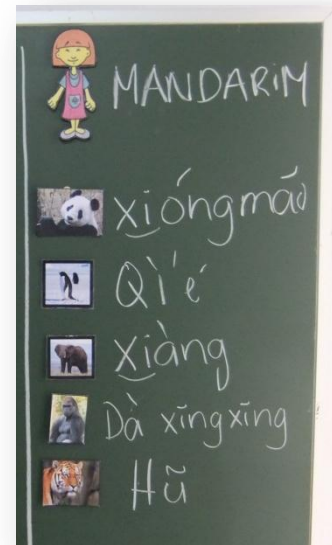 MANDARIM
xióngmáo
Qì'é
Xiàng
Dà xīngxīng
Hũ